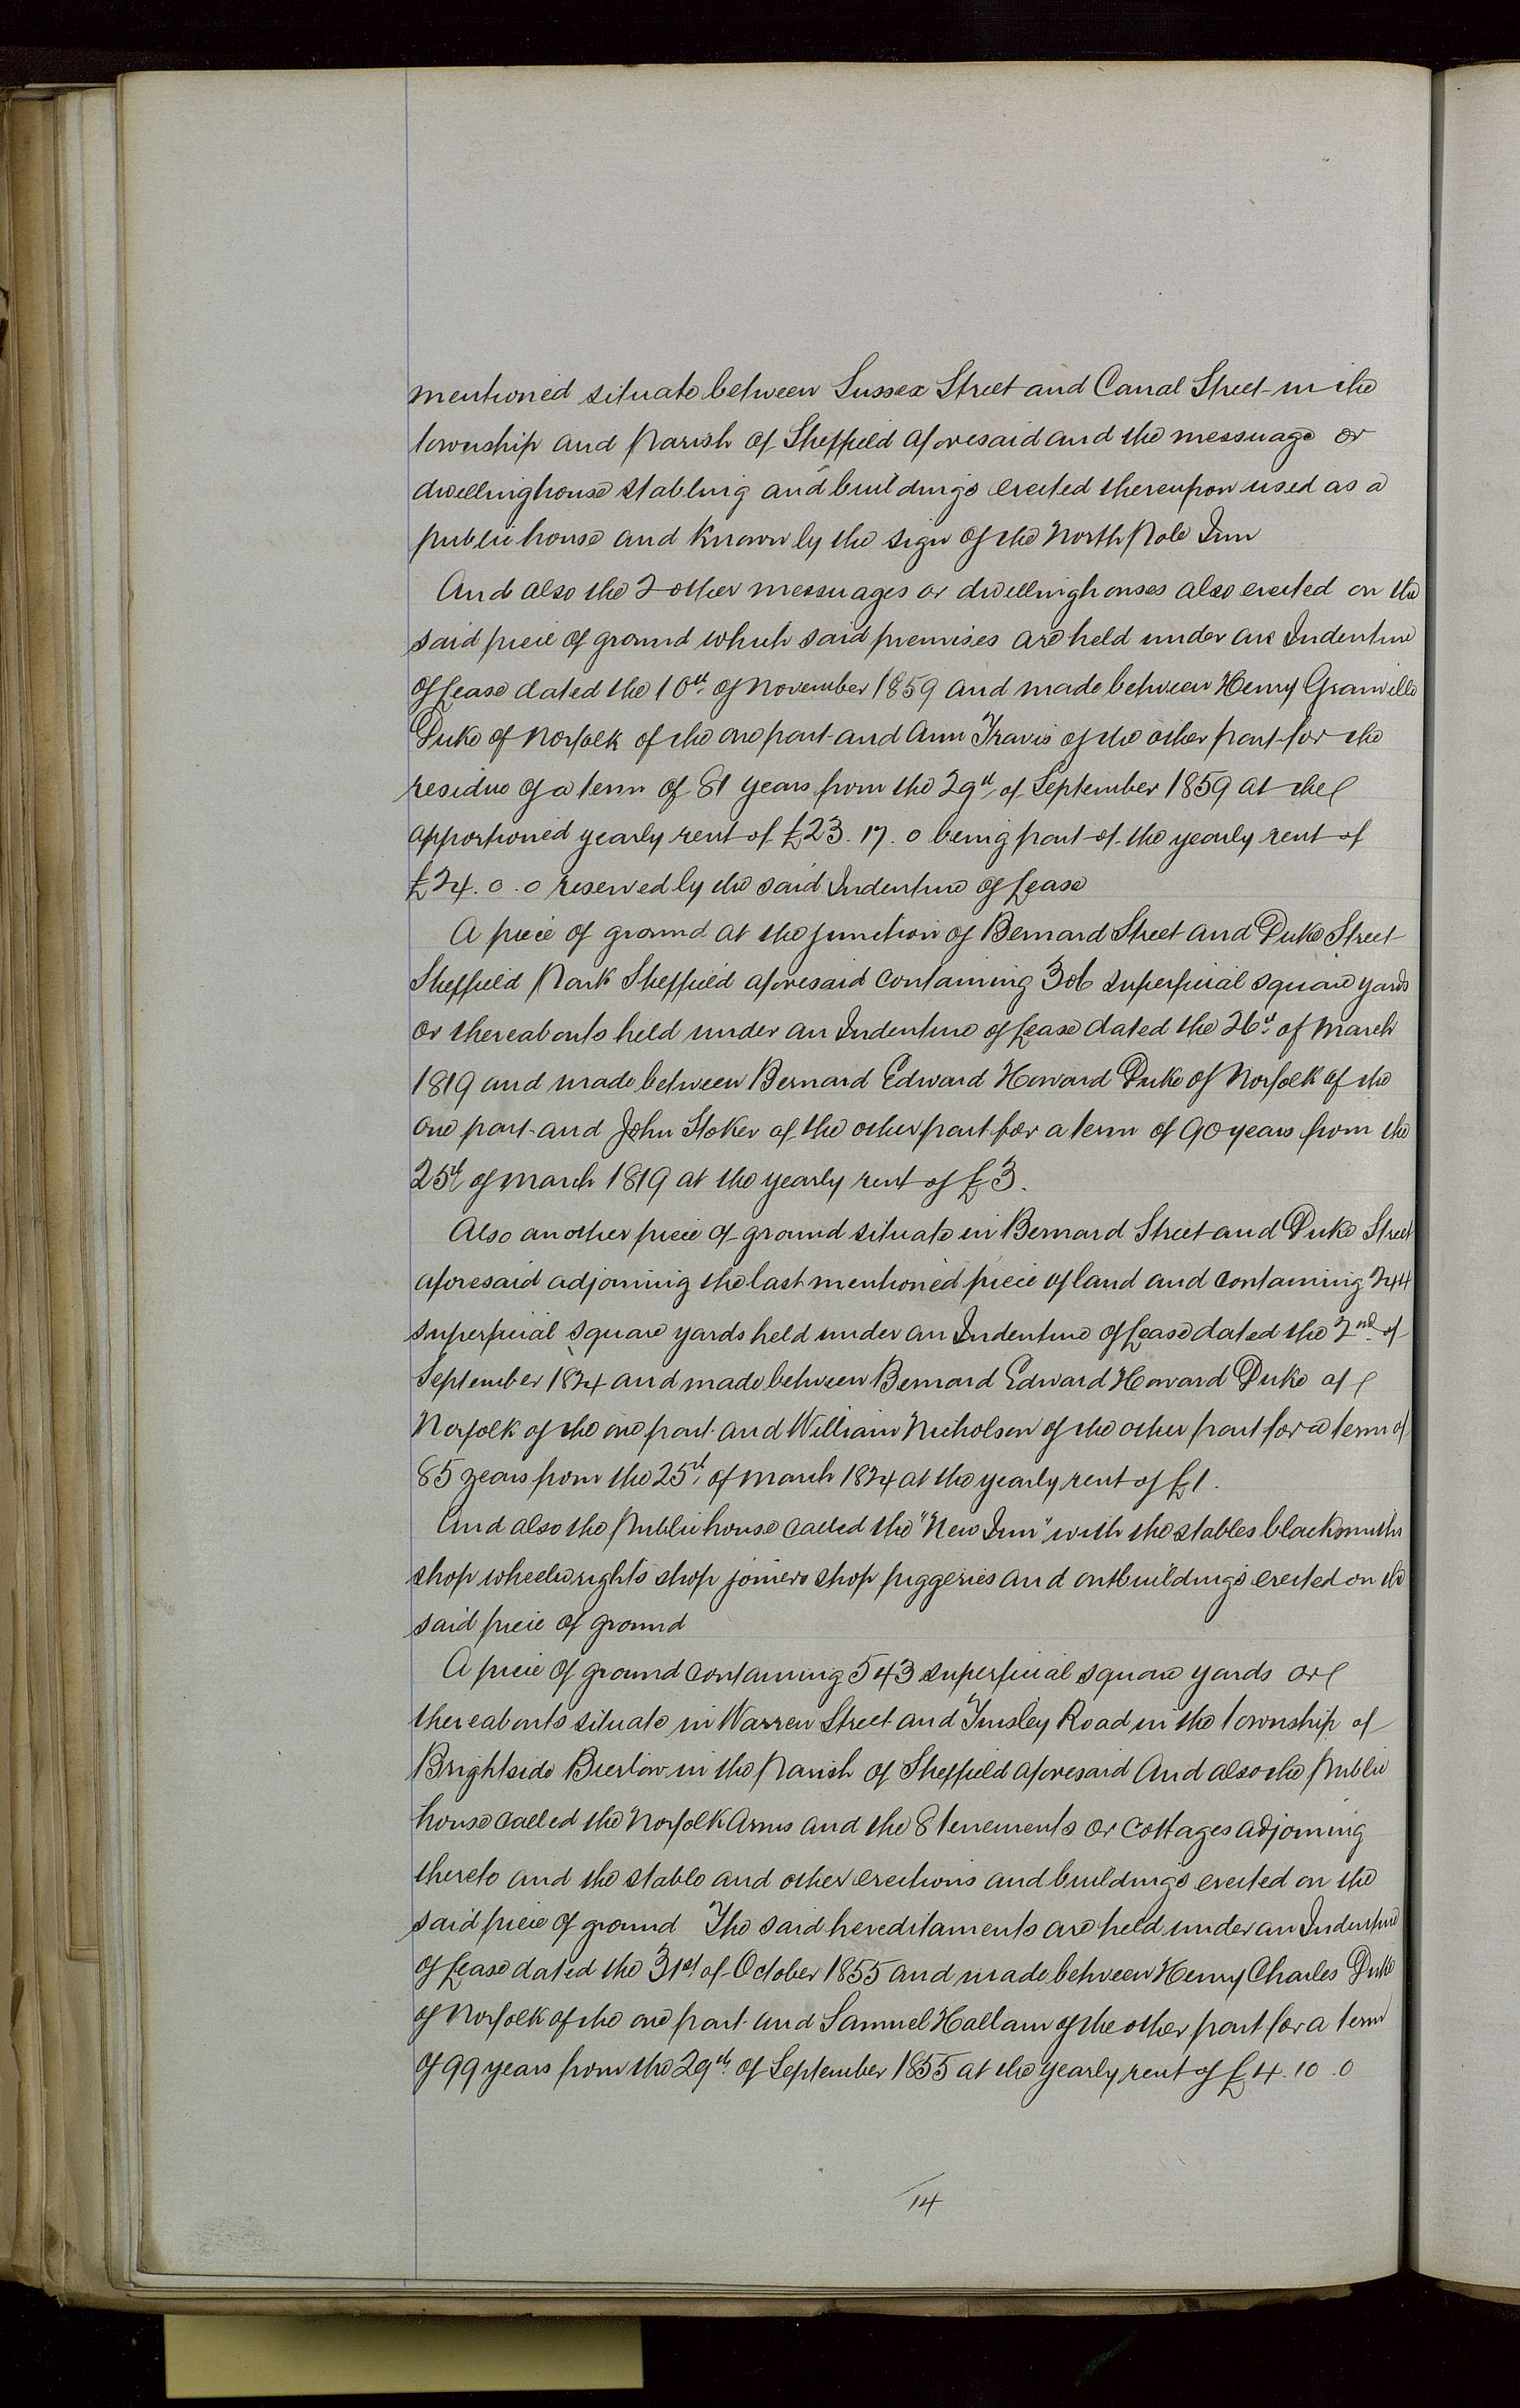 mentioned situate between Sussex Street and Canal Street in the
township and Parish of Sheffield aforesaid and the messuage or
dwellinghouse stabling and buildings erected thereupon used as a
public house and known by the sign of the North Pole Inn
And also the 2 other messuages or dwellinghouses also erected on the
said piece of ground which said premises are held under an Indenture
of Lease dated the 10th of November 1859 and made between Henry Granville
Duke of Norfolk of the one part and Ann Travis of the other part for the
residue of a term of 81 years from the 29th of September 1859 at the
apportioned yearly rent of £23. 17. 0 being part of the yearly rent of
£24. 0. 0 reserved by the said Indenture of Lease
A piece of ground at the junction of Bernard Street and Duke Street
Sheffield Park Sheffield aforesaid containing 306 superficial square yards
or thereabouts held under an Indenture of Lease dated the 26th of March
1819 and made between Bernard Edward Howard Duke of Norfolk of the
one part and John Stoker of the other part for a term of 90 years from the
25th of March 1819 at the yearly rent of £3.
Also another piece of ground situate in Bernard Street and Duke Street
aforesaid adjoining the last mentioned piece of land and containing 244
superficial square yards held under an Indenture of Lease dated the 2nd of
September 1824 and made between Bernard Edward Howard Duke of
Norfolk of the one part and William Nicholson of the other part for a term of
85 years from the 25th of March 1824 at the yearly rent of £1.
And also the Public house called the "New Inn" with the stables blacksmiths
shop wheelwrights shop joiners shop piggeries and outbuildings erected on the
said piece of ground
A piece of ground containing 543 superficial square yards or
thereabouts situate in Warren Street and Tinsley Road in the township of
Brightside Bierlow in the Parish of Sheffield aforesaid And also the Public
house called the Norfolk Arms and the 8 tenements or cottages adjoining
thereto and the stable and other erections and buildings erected on the
said piece of ground The said hereditaments are held under an Indenture
of Lease dated the 31st of October 1855 and made between Henry Charles Duke
of Norfolk of the one part and Samuel Hallam of the other part for a term
of 99 years from the 29th of September 1855 at the yearly rent of £4. 10. 0
14